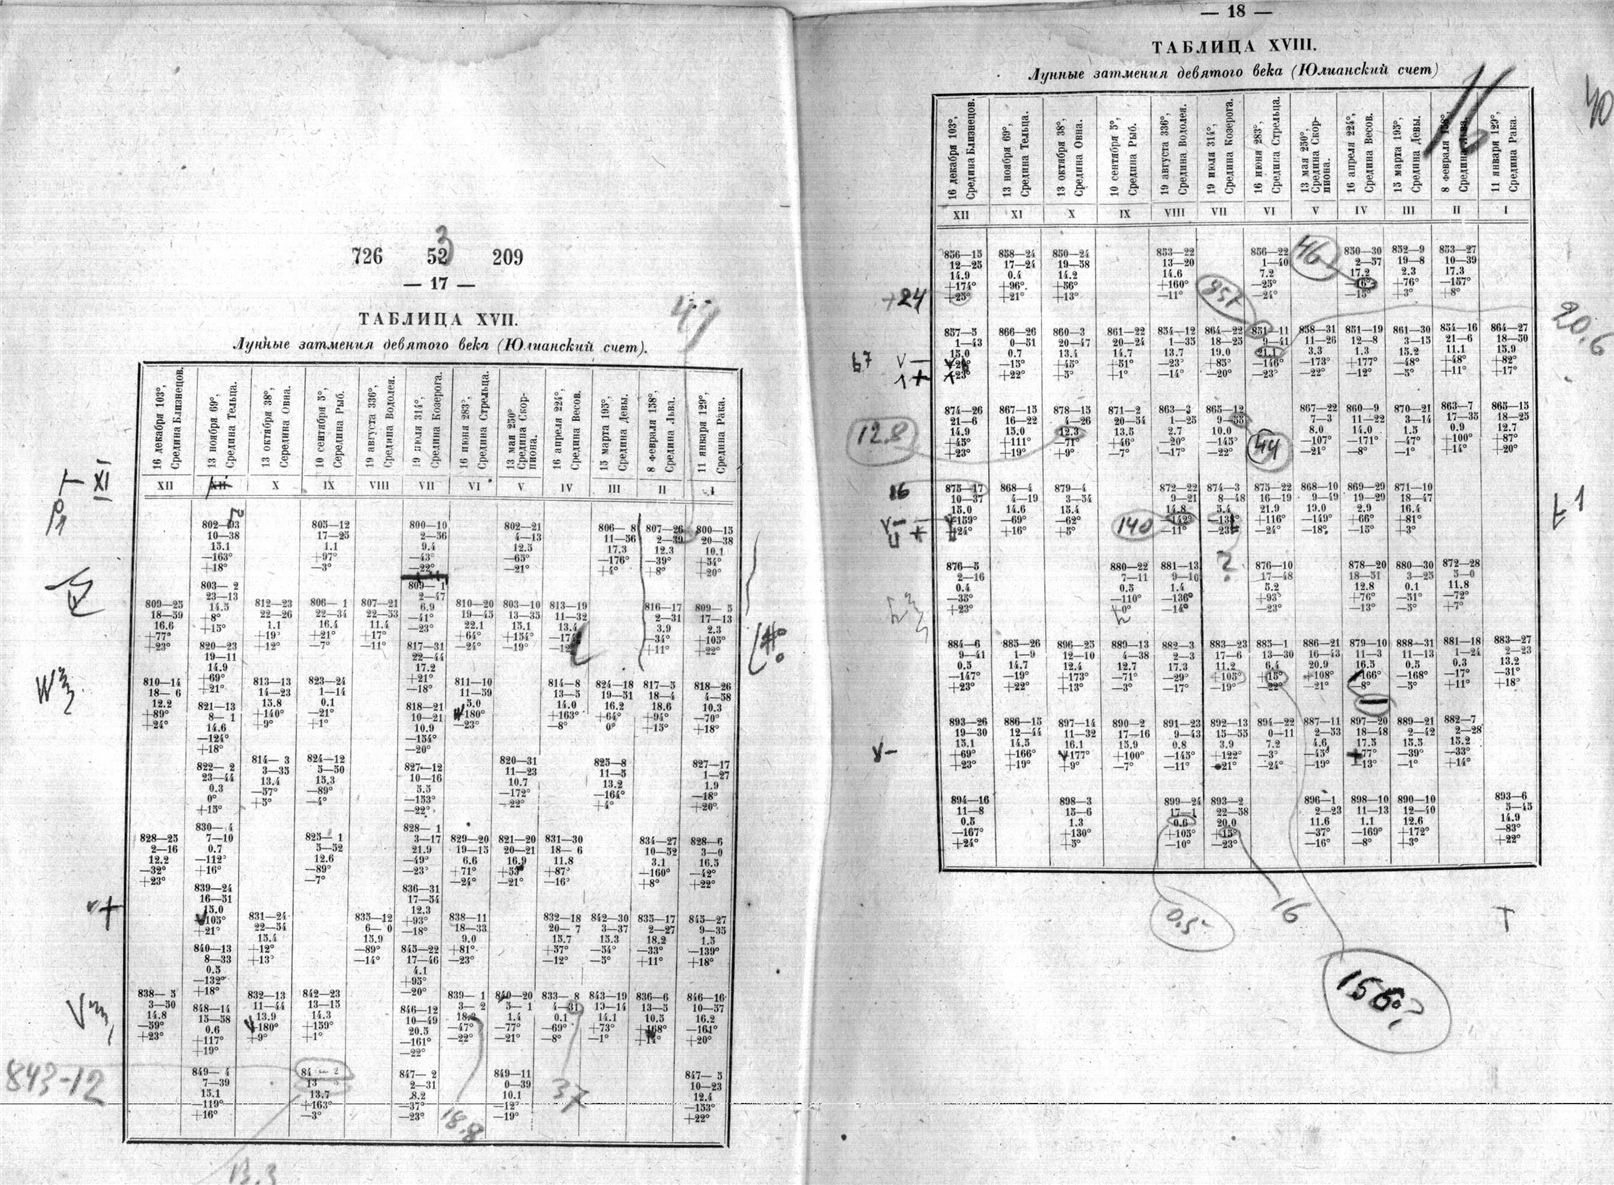 726 52 209
3
— 17 —
ТАБЛИЦА XVII.
Лунные затмения девятого века (Юлианский счет).
16 декабря 103°, Средина Близнецов.
13 ноября 69°, Средина Тельца.
13 октября 38°, Середина Овна.
10 сентября 5°, Середина Рыб.
19 августа 336°, Средина Водолея.
19 июля 314°, Средина Козерога.
16 июня 283°, Средина Стрельца.
13 мая 250° Средина Скорпиона.
16 апреля 224°, Средина Весов.
15 марта 195°, Средина Девы.
8 февраля 138°, Средина Льва.
11 января 129°, Средина Рака.
XII X IX VIII VII VI V IV III II I
XI
802—03 805—12 800—10 802—21 806— 8 807—26 800—15
10—38 17—25 2—36 4—13 11—56 20—38
15.1 1.1 9.4 12.5 17.3 12.3 10.1
—163° +97° —43° —65° —176° —39° +54°
+18° —3° —22° —21° +4° +8° +20°
803— 2
23—13 2—47
14.5 6.9
+8° —41°
+15° —23°
809—25 812—23 806— 1 807—21 810—20 803—10 813—19 816—17 809— 5
18—59 22—26 22—34 22—53 19—45 13—35 11—32 2—31 17—13
16.6 1.1 16.4 11.4 22.1 15.1 13.4 3.9 2.3
+77° +19° +21° +17° +64° +154° —34° +103°
+23° +12° —7° —11° —24° —19° +11° +22°
820—23 817—31
19—11 22—44
14.9 17.2
+69° +21°
+21° —18°
810—14 813—13 823—24 811—10 814—8 824—18 817—5 818—26
18— 6 14—23 1—14 11—59 13—5 19—51 18—4 4—58
12.2 15.8 0.1 5.0 14.0 16.2 18.6 10.3
+89° +140° —21° 180° +163° +64° +94° —70°
+24° +9° +1° —23° —8° 0° +15° +18°
821—13 818—21
8— 1 10—21
14.6 10.9
—124° —154°
+18° —20°
822— 2 814— 3 824—12 827—12 820—31 825—8 827—17
23—44 3—35 5—50 10—16 11—23 11—5 1—27
0.3 13.4 15.3 5.5 10.7 13.2 1.9
0° —57° —89° —153° —172° —164° —18°
+15° +5° —4° —22° —22° +4° +20°
830— 4 828— 1
7—10 3—17
0.7 21.9
—112° —49°
+16° —23°
828—25 825— 1 829—20 821—20 831—30 834—27 828—6
2—16 5—52 19—15 20—21 18— 6 10—52 3—0
12.2 12.6 6.6 16.9 11.8 3.1 16.5
—32° —89° +71° +87° —160° —42°
+23° —7° —24° —21° —16° +8° +22°
839—24 836—31
16—51 17—54
15.0 12.3
105° +93°
+21° —18°
831—24 835—12 838—11 832—18 842—30 835—17 845—27
22—54 6— 0 18—33 20— 7 3—37 2—27 9—35
15.4 15.9 9.0 15.7 15.3 18.2 1.5
+12° —89° +81° +57° —54° —33° —139°
+13° —14° —23° —12° —5° +11° +18°
840—13 845—22
8—33 17—46
0.5 4.1
—132° +95°
+18° —20°
838— 5 832—13 842—23 839— 1 840—20 833— 8 843—19 836—6 846—16
3—50 11—44 13—15 3— 2 5— 1 13—14 13—5 10—57
14.8 13.9 14.3 1.4 0.1 14.1 10.5 16.2
—59° 180° +159° —47° —77° —69° +73° —161°
+23° +9° +1° —22° —21° —8° —1° +20°
848—14 846—12
15—58 10—49
0.6 20.5
+117° —161°
+19° —22°
849— 4 847— 2 849—11 847— 5
7—39 2—31 0—39 10—23
15.1 13.7 8.2 10.1 12.4
—119° +163° —37° —12° —153°
+16° —3° —23° —19° +22°
843-12
18,8
37
— 18 —
ТАБЛИЦА XVIII.
Лунные затмения девятого века (Юлианский счет)
16 декабря 103°, Средина Близнецов.
13 ноября 69°, Средина Тельца.
13 октября 38°, Средина Овна.
10 сентября 5°, Средина Рыб.
19 августа 336°, Средина Водолея.
19 июля 314°, Средина Козерога.
16 июня 283°, Средина Стрельца.
13 мая 250°, Средина Скорпиона.
16 апреля 224°, Средина Весов.
15 марта 195°, Средина Девы.
8 февраля
11 января 129°, Средина Рака.
16
XII XI X IX VIII VII VI V IV III II I
856—15 858—24 850—24 853—22 856—22 850—30 852—9 853—27
12—25 17—24 19—58 13—20 1—40 2—57 19—8 10—39
14.9 0.4 14.2 14.6 7.2 17.2 2.3 17.3
+174° +96° +56° +160° —25° +76° —157°
+25° +21° +13° —11° —24° —15° +3° +8°
46
+24
20.6
857—5 866—26 860—3 861—22 854—12 864—22 851—11 858—31 851—19 861—30 854—16 864—27
1—43 0—51 20—47 20—24 1—35 18—25 9—41 11—26 12—8 3—15 21—6 18—50
15.0 0.7 13.4 14.7 13.7 19.0 21.1 3.3 1.3 15.2 11.1 15.9
—15° +45° +51° —23° +85° —146° —173° +177° —48° +48° +82°
+23° +22° +5° +1° —14° —20° —23° —22° —12° —5° +11° +17°
874—26 867—15 878—15 871—2 863—3 865—12 867—22 860—9 870—21 863—7 865—15
21—6 16—22 4—26 20—54 1—25 7—3 11—22 3—14 17—35 18—25
14.9 15.0 12.3 13.5 2.7 10.0 8.0 14.0 1.5 0.9 12.7
+45° +111° —71° +46° —20° —145° —107° —171° —47° +100° +87°
+23° +19° +9° —7° —17° —22° —21° —8° —1° +14° +20°
12.8
44
875—17 868—4 879—4 872—22 874—3 875—22 868—10 869—29 871—10
10—37 4—19 3—54 9—21 8—48 16—19 9—49 19—29 18—47
15.0 14.6 15.4 14.8 5.4 21.9 19.0 2.9 16.4
159° —69° —62° +116° —149° +66° +81°
+24° +16° +5° —11° —23° —24° —18° —15° +3°
16
140
?
876—5 880—22 881—13 876—10 878—20 880—30 872—28
2—16 7—11 9—10 17—48 18—51 3—25 5—0
0.4 0.5 1.4 5.2 12.8 0.1 11.8
—35° —110° —136° +93° —76° —51° —72°
+23° +0° —14° —23° —13° —5° +7°
884—6 885—26 896—25 889—13 882—3 883—23 885—1 886—21 879—10 888—31 881—18 883—27
9—41 1—9 12—10 4—38 2—3 17—6 13—30 16—43 11—3 11—13 1—24 2—23
0.5 14.7 12.4 12.7 17.3 11.2 6.4 20.9 16.5 0.5 0.3 13.2
—147° —19° +173° —71° —29° +103° +108° 166° —168° —17° —31°
+23° +22° +13° —3° —17° —19° —22° —21° 8° —5° +11° +18°
893—26 886—15 897—14 890—2 891—23 892—13 894—22 887—11 897—20 889—21 882—7
19—30 12—44 11—32 17—16 9—43 15—55 0—11 2—53 18—48 2—42 2—28
15.1 14.5 16.1 15.9 0.8 3.9 7.2 4.6 17.5 15.5 15.2
+69° +166° 177° +100° —145° +122° —3° —45° 77° —39° —33°
+23° +19° +9° —7° —11° 21° —24° —19° —13° —1° +14°
894—16 898—3 899—24 893—2 896—1 898—10 890—10 893—6
11—8 15—6 22—58 2—23 11—13 12—40 5—45
0.5 1.3 0.6 20.0 11.6 1.1 12.6 14.9
—167° +130° +103° —37° —169° +172° —83°
+24° +5° —10° —23° —16° —8° +3° +22°
0.5
16